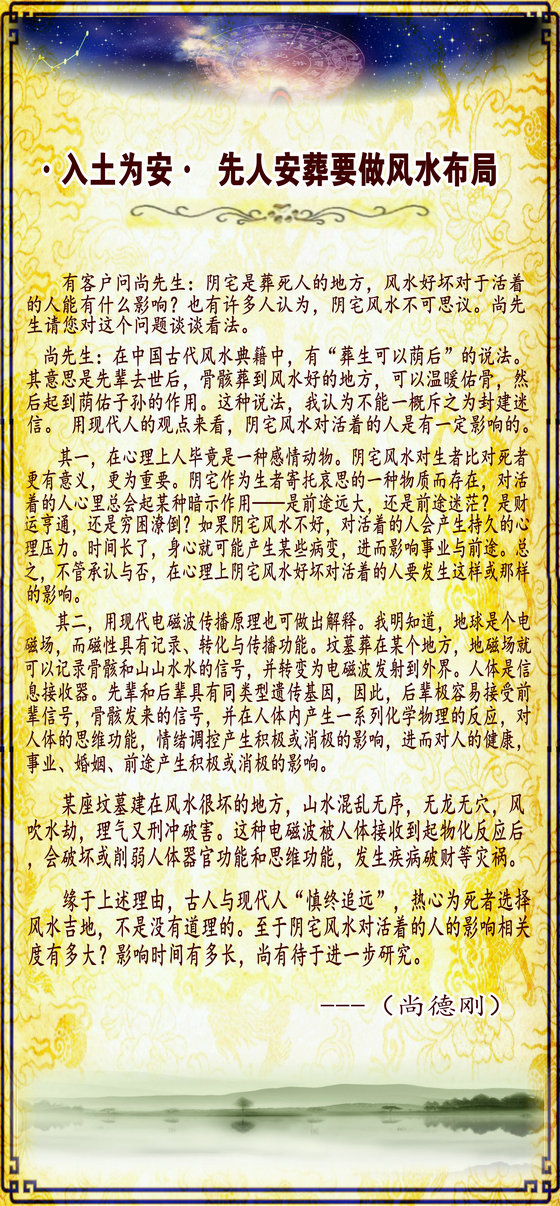 ·入土为安· 先人安葬要做风水布局
有客户问尚先生：阴宅是葬死人的地方，风水好坏对于活着
的人能有什么影响？也有许多人认为，阴宅风水不可思议。尚先
生请您对这个问题谈谈看法。
尚先生：在中国古代风水典籍中，有“葬生可以荫后”的说法。
其意思是先辈去世后，骨骸葬到风水好的地方，可以温暖佑骨，然
后起到荫佑子孙的作用。这种说法，我认为不能一概斥之为封建迷
信。 用现代人的观点来看，阴宅风水对活着的人是有一定影响的。
其一，在心理上人毕竟是一种感情动物。阴宅风水对生者比对死者
更有意义，更为重要。阴宅作为生者寄托哀思的一种物质而存在，对活
着的人心里总会起某种暗示作用——是前途远大，还是前途迷茫？是财
运亨通，还是穷困潦倒？如果阴宅风水不好，对活着的人会产生持久的心
理压力。时间长了，身心就可能产生某些病变，进而影响事业与前途。总
之，不管承认与否，在心理上阴宅风水好坏对活着的人要发生这样或那样
的影响。
其二，用现代电磁波传播原理也可做出解释。我明知道，地球是个电
磁场，而磁性具有记录、转化与传播功能。坟墓葬在某个地方，地磁场就
可以记录骨骸和山山水水的信号，并转变为电磁波发射到外界。人体是信
息接收器。先辈和后辈具有同类型遗传基因，因此，后辈极容易接受前
辈信号，骨骸发来的信号，并在人体内产生一系列化学物理的反应，对
人体的思维功能，情绪调控产生积极或消极的影响，进而对人的健康，
事业、婚姻、前途产生积极或消极的影响。
某座坟墓建在风水很坏的地方，山水混乱无序，无龙无穴，风
吹水劫，理气又刑冲破害。这种电磁波被人体接收到起物化反应后
，会破坏或削弱人体器官功能和思维功能，发生疾病破财等灾祸。
缘于上述理由，古人与现代人“慎终追远”，热心为死者选择
风水吉地，不是没有道理的。至于阴宅风水对活着的人的影响相关
度有多大？影响时间有多长，尚有待于进一步研究。
---（尚德刚）